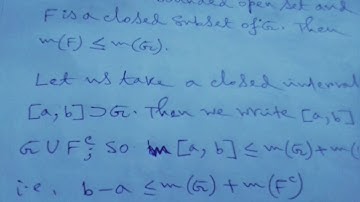 bounded open set and
F is a closed subset of G. Then
m(F) ≤ m(G).
Let us take a closed interval
[a, b] ⊃ G. Then we write [a, b]
G ∪ F^c; So m[a, b] ≤ m(G) + m
i.e. b - a ≤ m(G) + m(F^c)